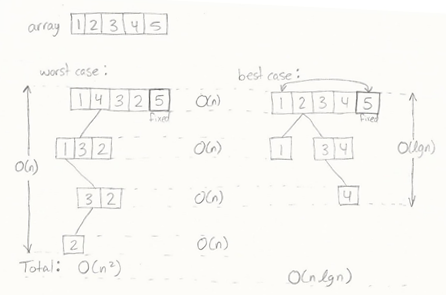 array 1 2 3 4 5
worst case:
1 4 3 2 5 O(n)
fixed
1 3 2 O(n)
O(n)
3 2 O(n)
2 O(n)
Total: O(n²)
best case:
1 2 3 4 5
fixed
1 3 4
O(lgn)
4
O(n lgn)